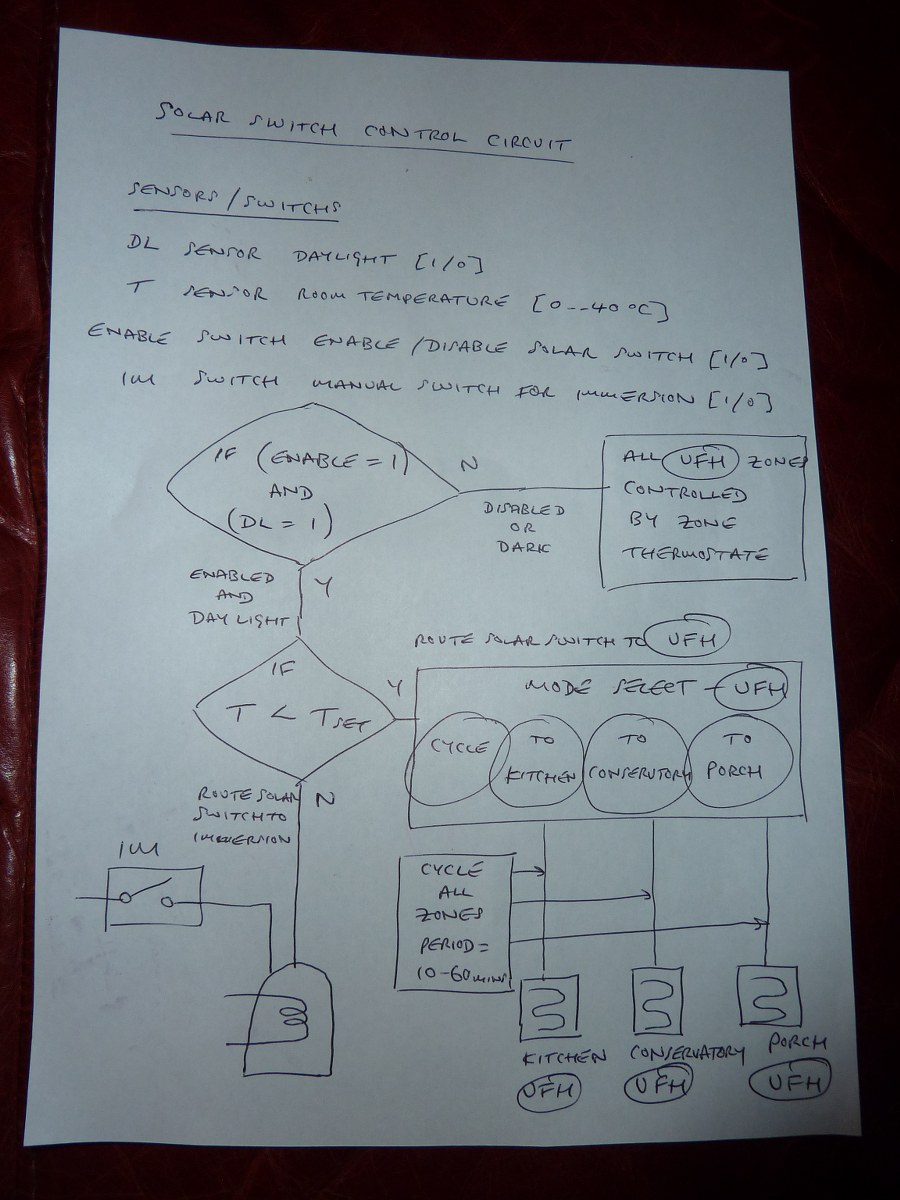 SOLAR SWITCH CONTROL CIRCUIT
SENSORS/SWITCHS
DL SENSOR DAYLIGHT [1/0]
T SENSOR ROOM TEMPERATURE [0--40°C]
ENABLE SWITCH ENABLE/DISABLE SOLAR SWITCH [1/0]
IM SWITCH MANUAL SWITCH FOR IMMERSION [1/0]
IF (ENABLE = 1)
AND
(DL = 1)
N
DISABLED
OR
DARK
ALL UFH ZONES
CONTROLLED
BY ZONE
THERMOSTATE
ENABLED
AND
DAYLIGHT
Y
IF
T < TSET
Y
ROUTE SOLAR SWITCH TO UFH
MODE SELECT - UFH
CYCLE
TO
KITCHEN
TO
CONSERVTORY
TO
PORCH
ROUTE SOLAR
SWITCH TO
IMMERSION
N
IM
CYCLE
ALL
ZONES
PERIOD =
10-60 MINS
KITCHEN
UFH
CONSERVATORY
UFH
PORCH
UFH